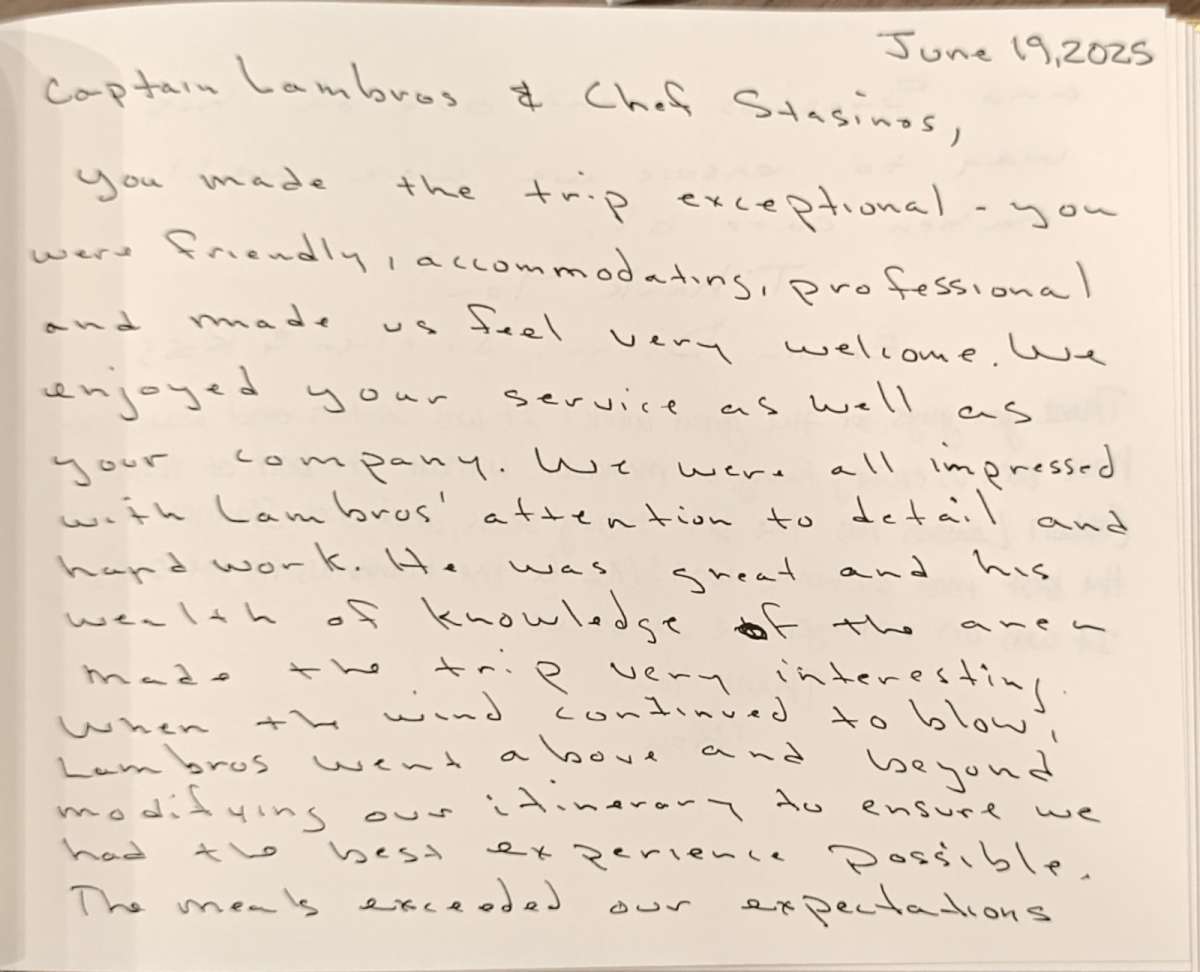 June 19, 2025
Captain Lambros & Chef Stasinos,
You made the trip exceptional - you
were friendly, accommodating, professional
and made us feel very welcome. We
enjoyed your service as well as
your company. We were all impressed
with Lambros' attention to detail and
hard work. He was great and his
wealth of knowledge of the area
made the trip very interesting.
When the wind continued to blow,
Lambros went above and beyond
modifying our itinerary to ensure we
had the best experience possible.
The meals exceeded our expectations